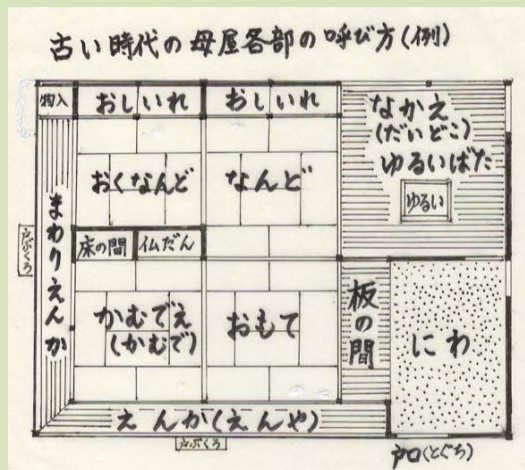 古い時代の母屋各部の呼び方(例)
物入
おしいれ
おしいれ
なかえ
(だいどこ)
ゆるいばた
ゆるい
おくなんど
なんど
まわりえんか
戸ぶくろ
床の間
仏だん
かむでえ
(かむで)
おもて
板の間
にわ
えんか(えんや)
戸ぶくろ
戸口(とぐち)